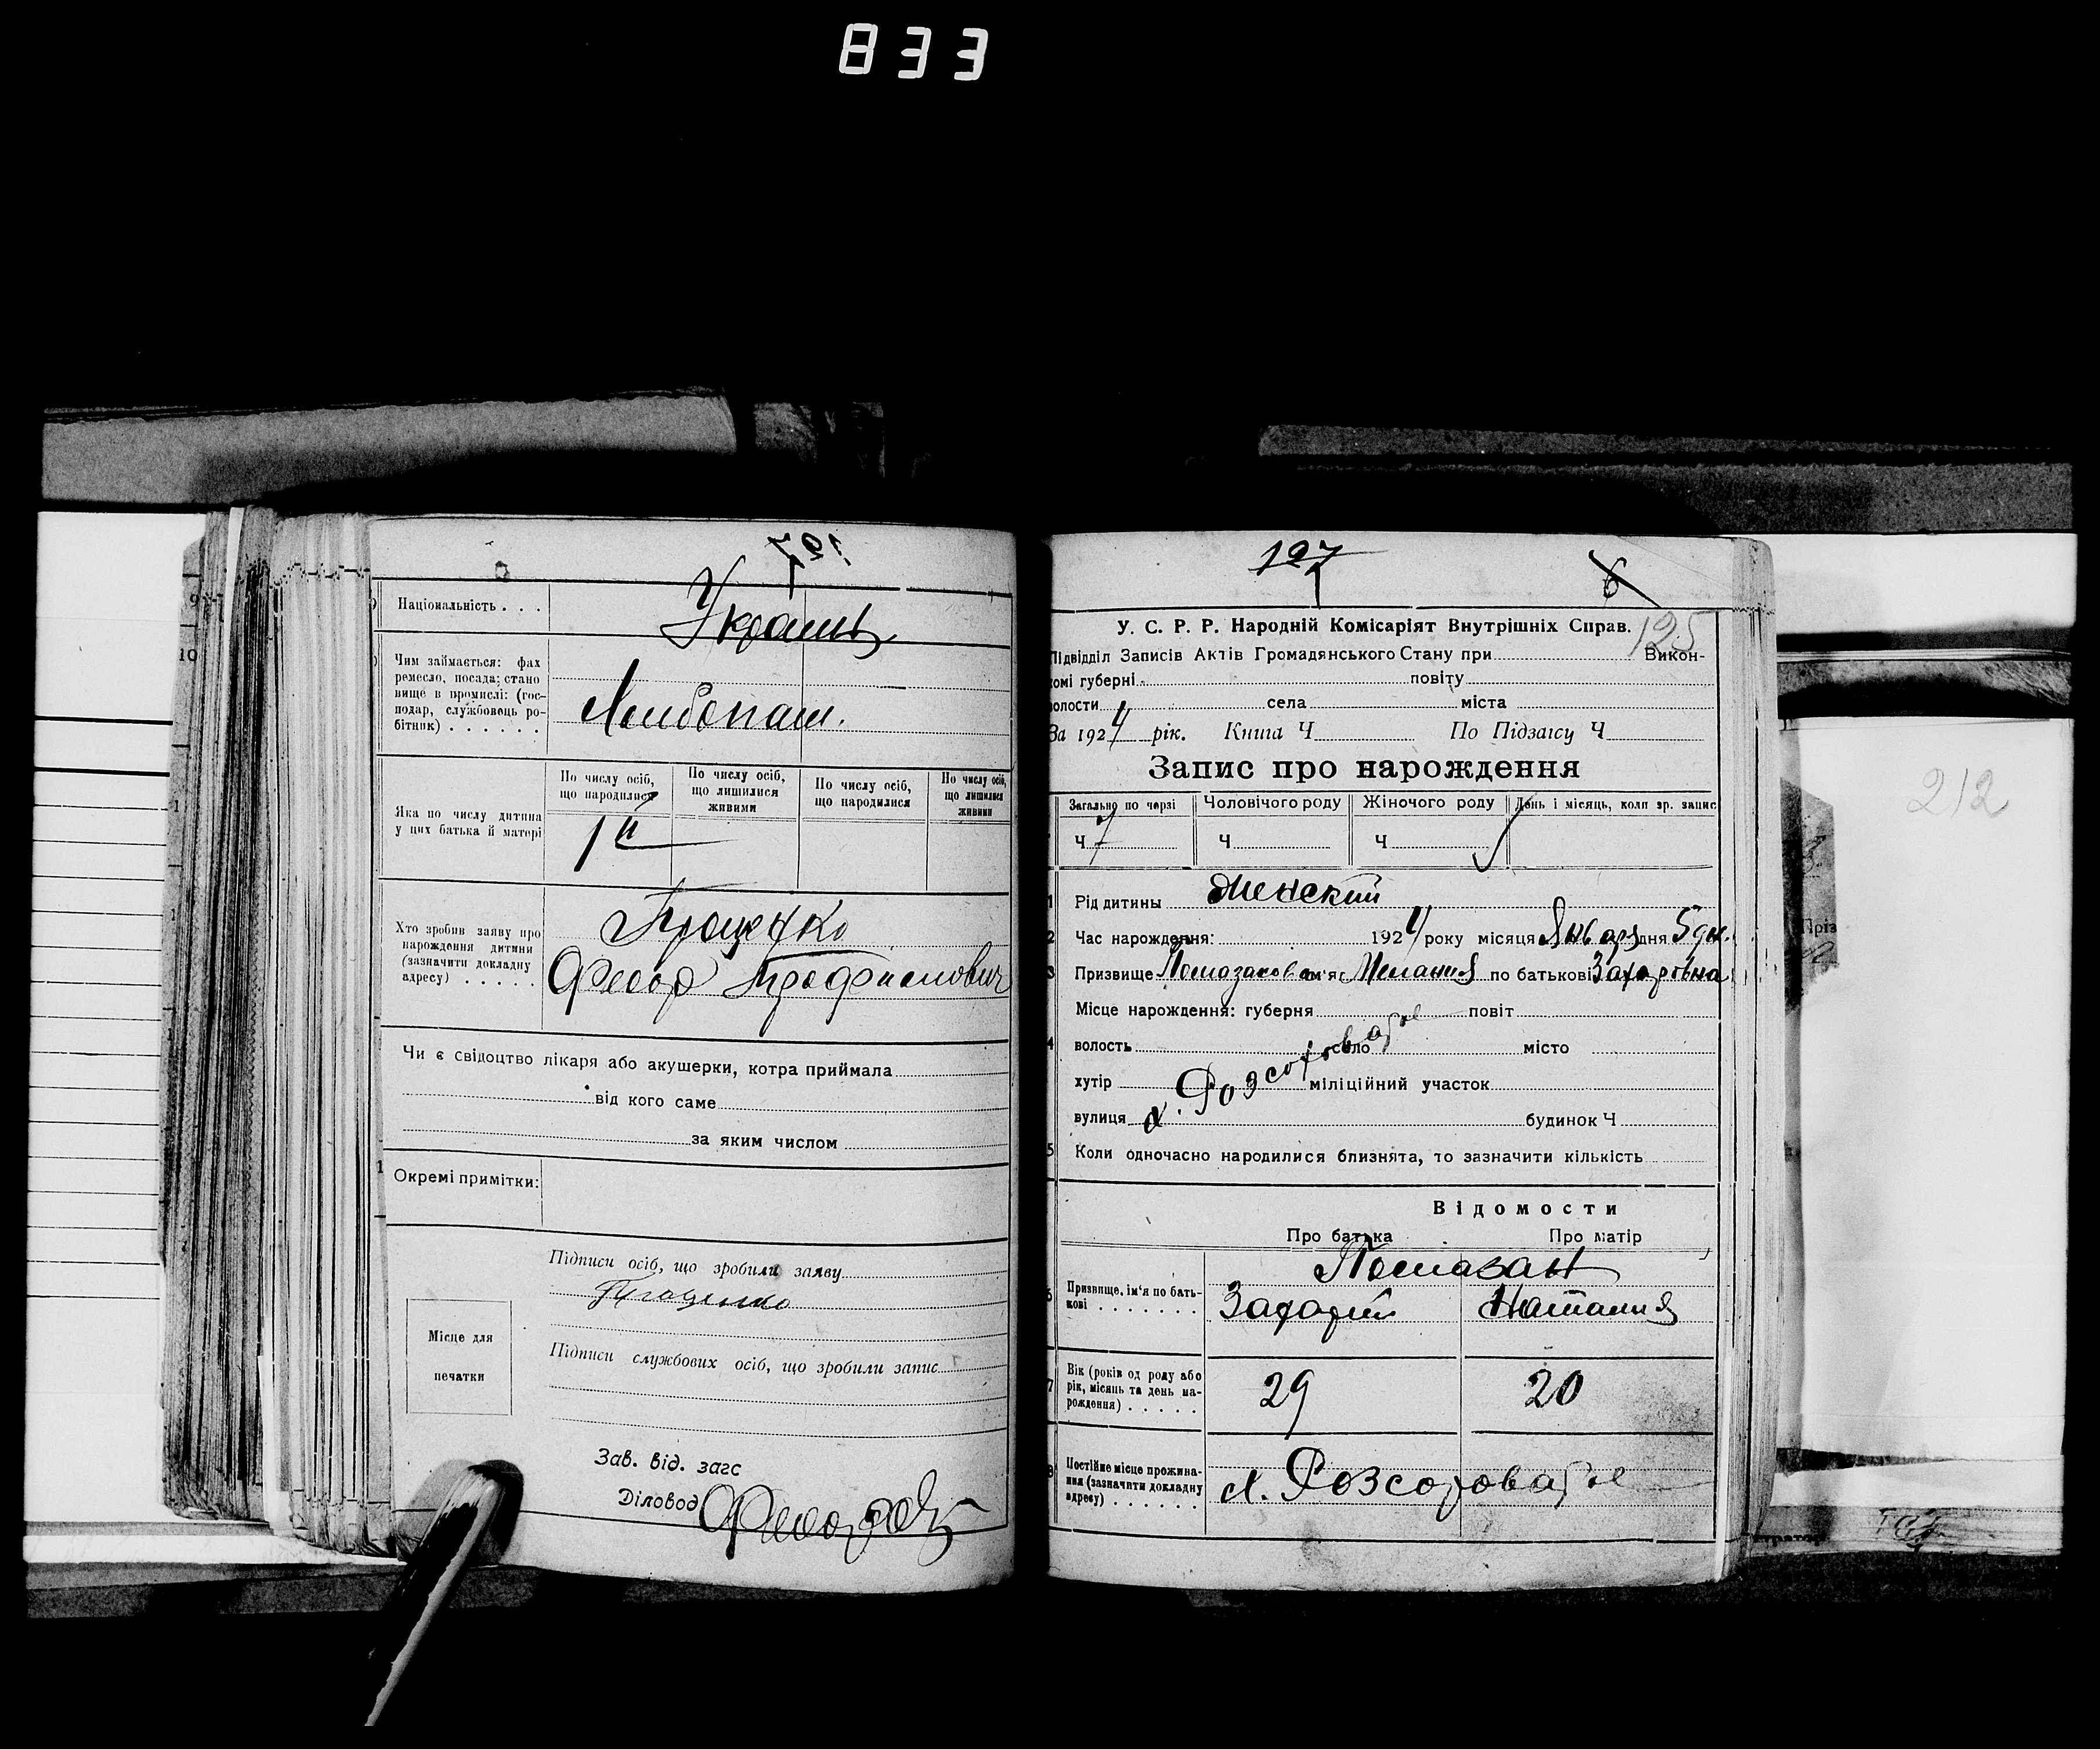 833
197
Національність . . .
Украинц
Чим займається: фах
ремесло, посада; стано
вище в промислі: (гос-
подар, службовець ро-
бітник) . . . . . .
Хлибопаш.
Яка по числу дитина
у цих батька й матері
По числу осіб,
що народилися
По числу осіб,
що лишилися
живими
По числу осіб,
що народилися
По числу осіб,
що лишилися
живими
Хто зробив заяву про
нарождення дитини
(зазначити докладну
адресу) . . . . .
Проценко
Федор Трофимович
Чи є свідоцтво лікаря або акушерки, котра приймала
від кого саме
за яким числом
Окремі примітки:
Підписи осіб, що зробили заяву
Проценко
Місце для
печатки
Підписи службових осіб, що зробили запис
Зав. від. загс
Діловод
197
6
125
У. С. Р. Р. Народній Комісаріят Внутрішніх Справ.
Підвідділ Записів Актів Громадянського Стану при Викон-
комі губерні повіту
волости села міста
За 1924 рік. Книга Ч По Підзагсу Ч
Запис про нарождення
Загально по черзі
Чоловічого роду
Жіночого роду
День і місяць, коли зр. запис
Ч 7
Ч
Ч
1 Рід дитини Женский
2 Час нарождення: 1924 року місяця Января дня 5 дн.
3 Призвище Помазанова ім'я Мелания по батькові Захаровна
Місце нарождення: губерня повіт
4 волость село місто
хутір міліційний участок
вулиця х. Розсоховатое будинок Ч
5 Коли одночасно народилися близнята, то зазначити кількість
Відомости
Про батька Про матір
Помазан
6 Призвище, ім'я по бать-
кові . . . . . . .
Захарий Наталия
7 Вік (років од роду або
рік, місяць та день на-
рождення) . . . . .
29 20
8 Постійне місце прожива-
ння (зазначити докладну
адресу) . . . . . .
х. Розсоховатое
212